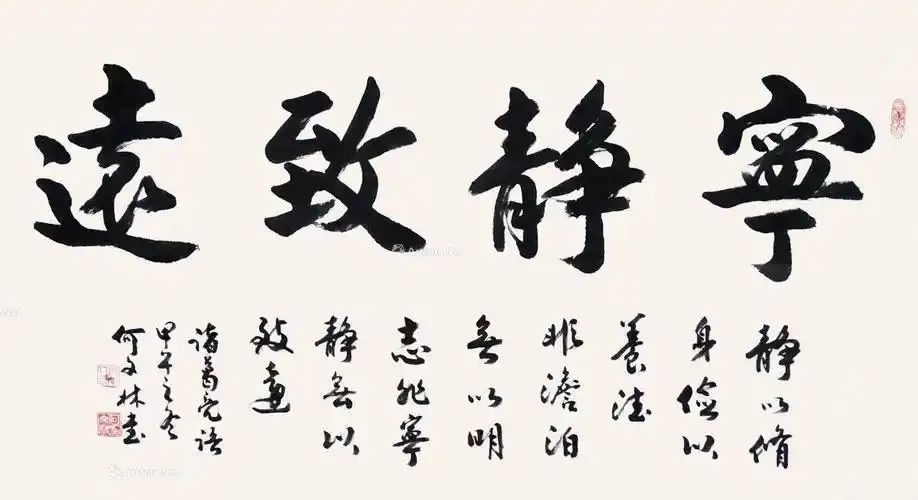 寧靜致遠
靜以脩
身儉以
養德
非澹泊
無以明
志非寧
靜無以
致遠
諸葛亮語
甲午之冬
何文林書